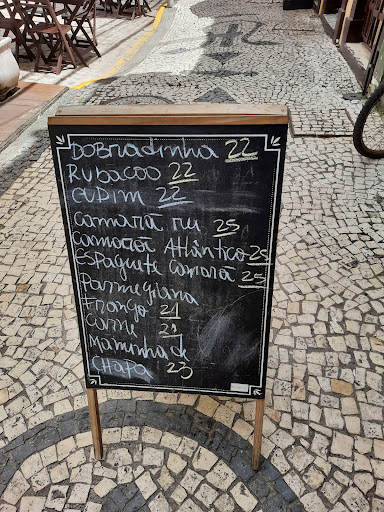 Dobradinha 22
Rubacao 22
Cupim 22
Camarão 25
Camarão Atlântico 25
Espaguete Camarã 25
Parmegiana
Frango 21
Carne 21
Maminha de
Chapa 23